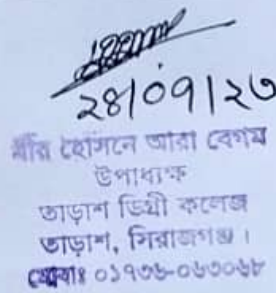 ২৪/০৭/২৩
মীর হোসনে আরা বেগম
উপাধ্যক্ষ
তাড়াশ ডিগ্রী কলেজ
তাড়াশ, সিরাজগঞ্জ।
মোবাঃ ০১৭৩৬-০৬৩০৬৮